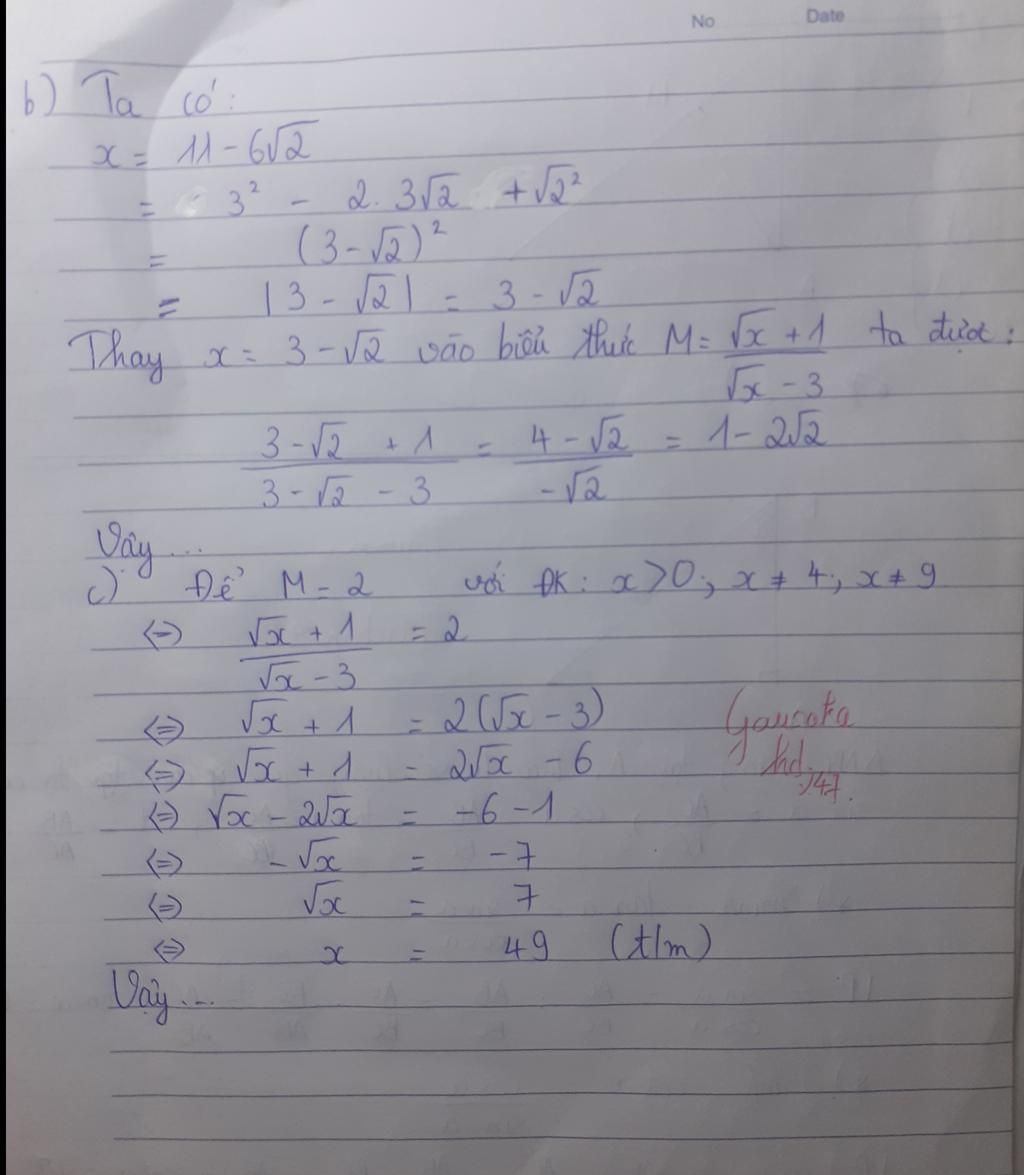 No Date
b) Ta có:
x = 11 - 6√2
= 3² - 2.3√2 + √2²
= (3 - √2)²
= |3 - √2| = 3 - √2
Thay x = 3 - √2 vào biểu thức M = (√x + 1)/(√x - 3) ta được:
(3 - √2 + 1)/(3 - √2 - 3) = (4 - √2)/(-√2) = 1 - 2√2
Vậy ...
c) Để M = 2 với ĐK: x > 0; x ≠ 4; x ≠ 9
<=> (√x + 1)/(√x - 3) = 2
<=> √x + 1 = 2(√x - 3)
<=> √x + 1 = 2√x - 6
<=> √x - 2√x = -6 - 1
<=> -√x = -7
<=> √x = 7
<=> x = 49 (t/m)
Vậy ...